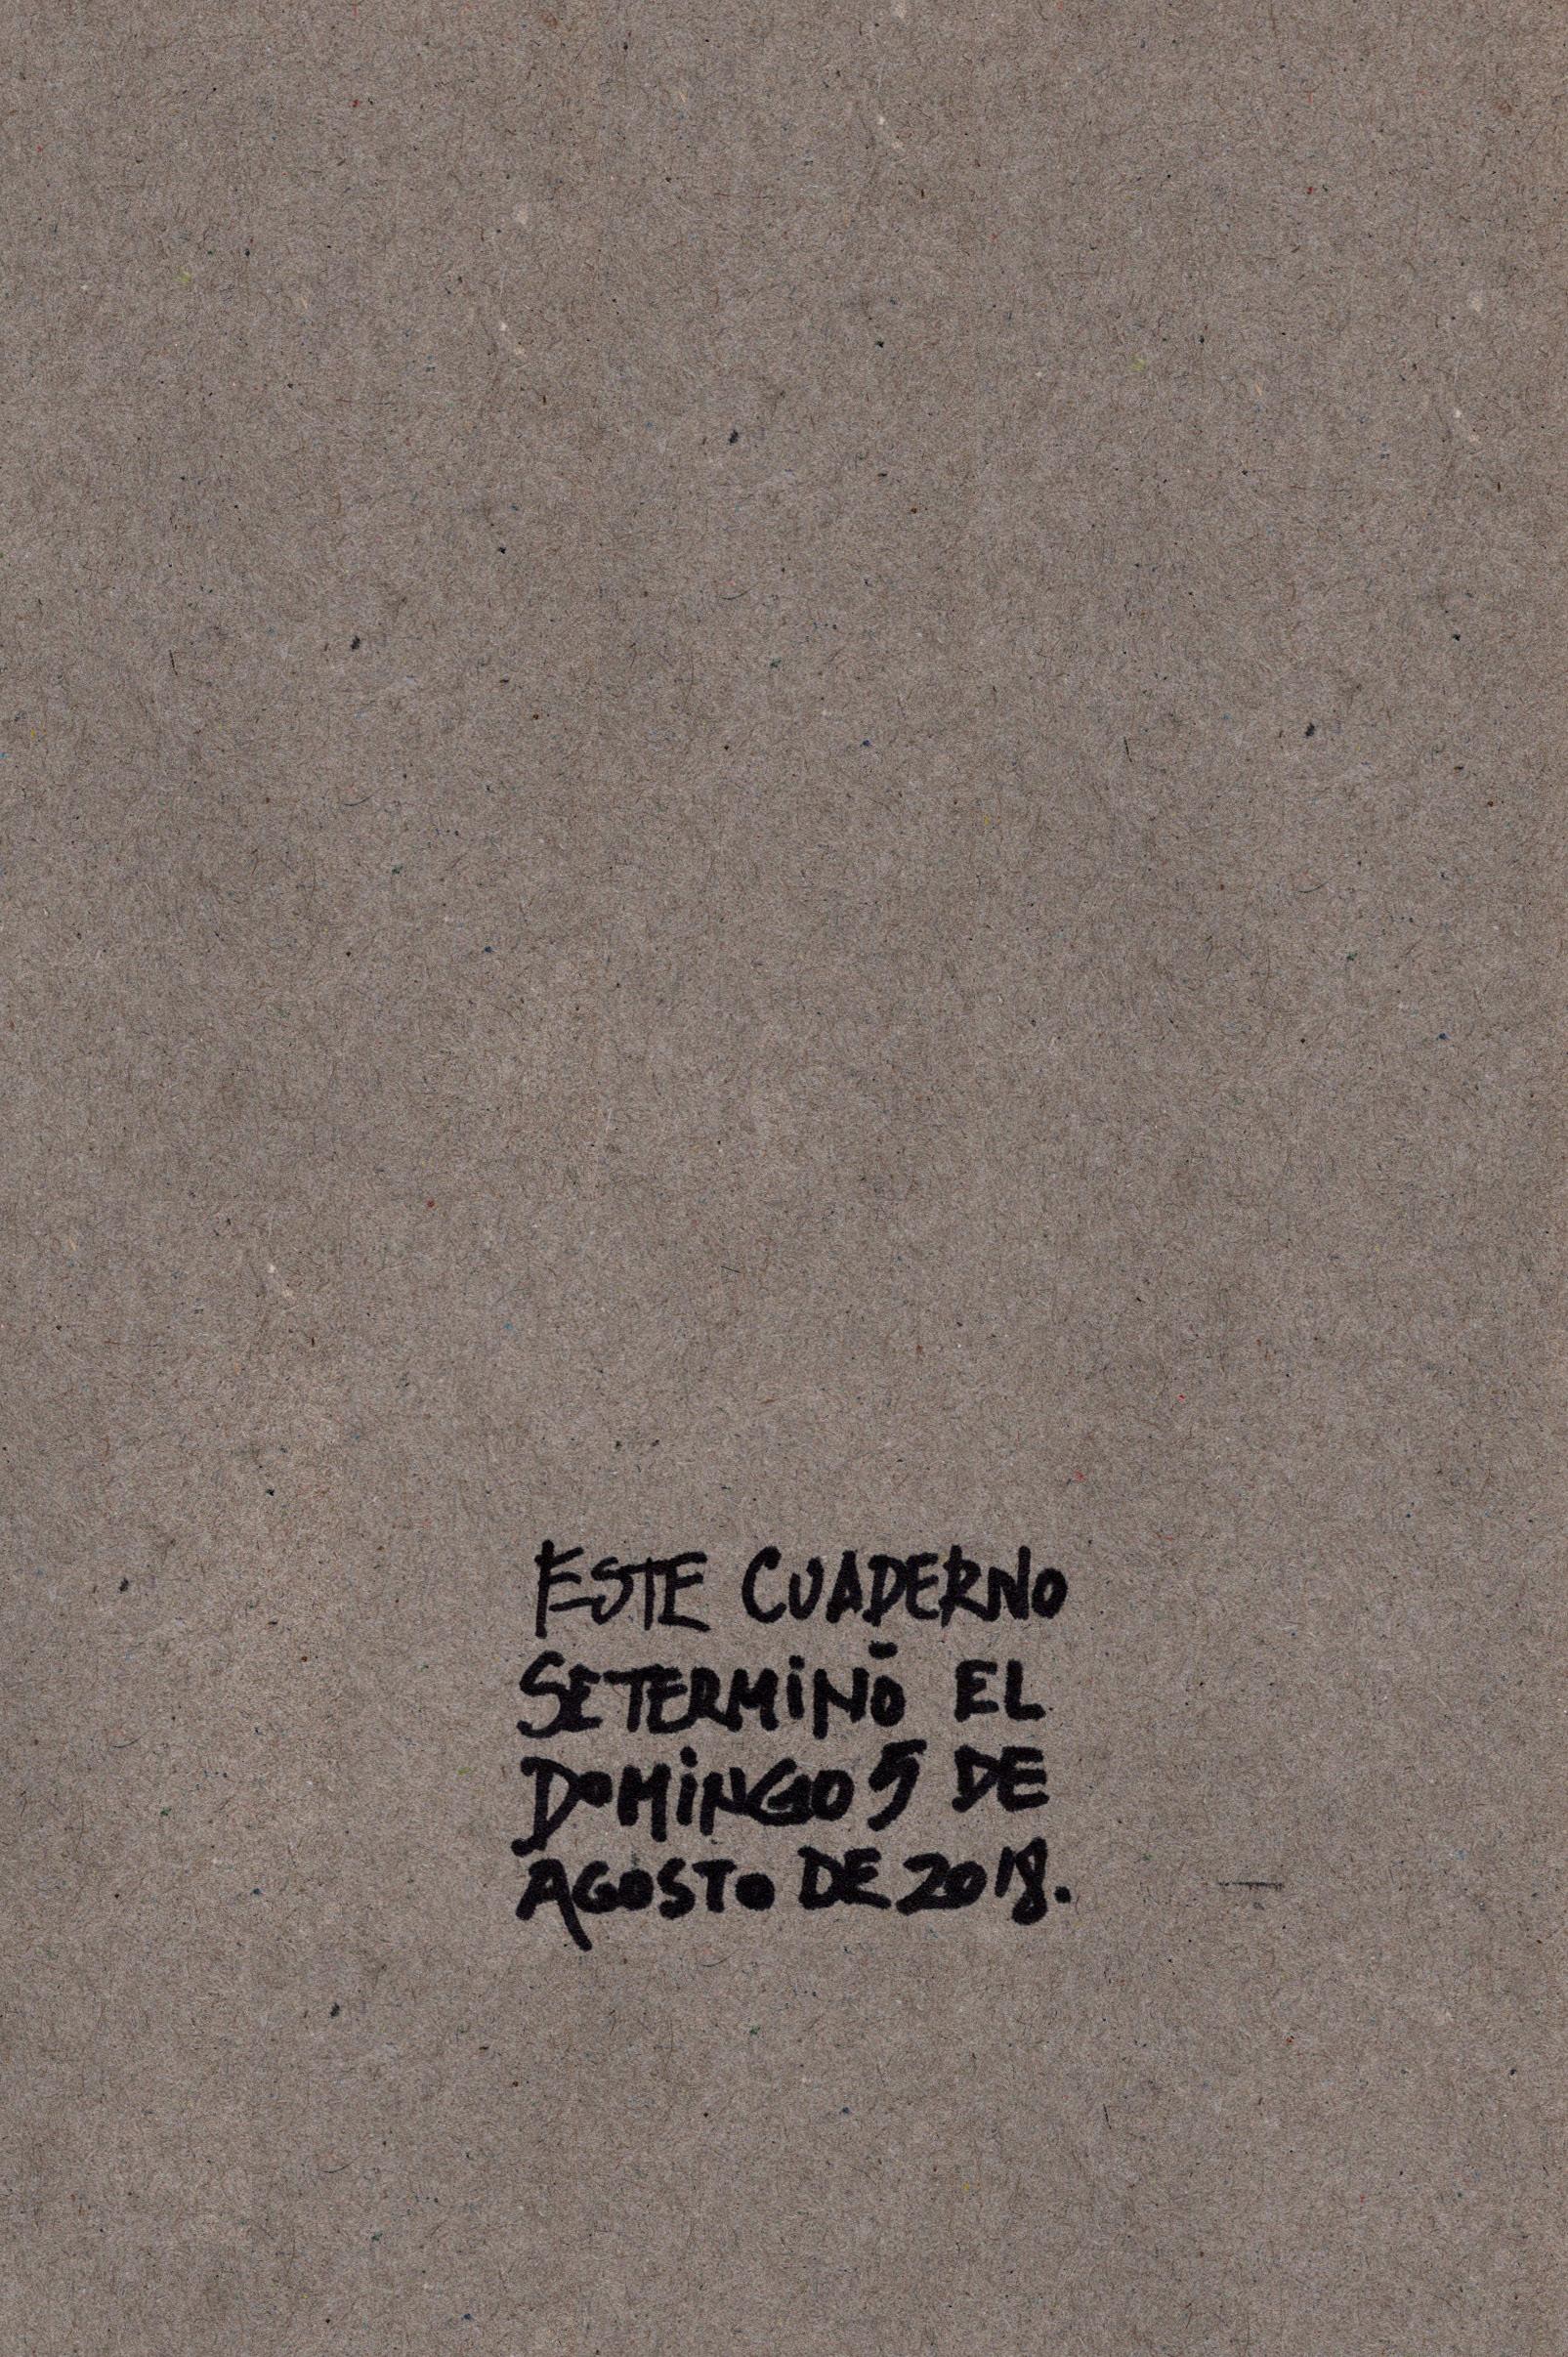 ESTE CUADERNO
SE TERMINÓ EL
DOMINGO 5 DE
AGOSTO DE 2018.